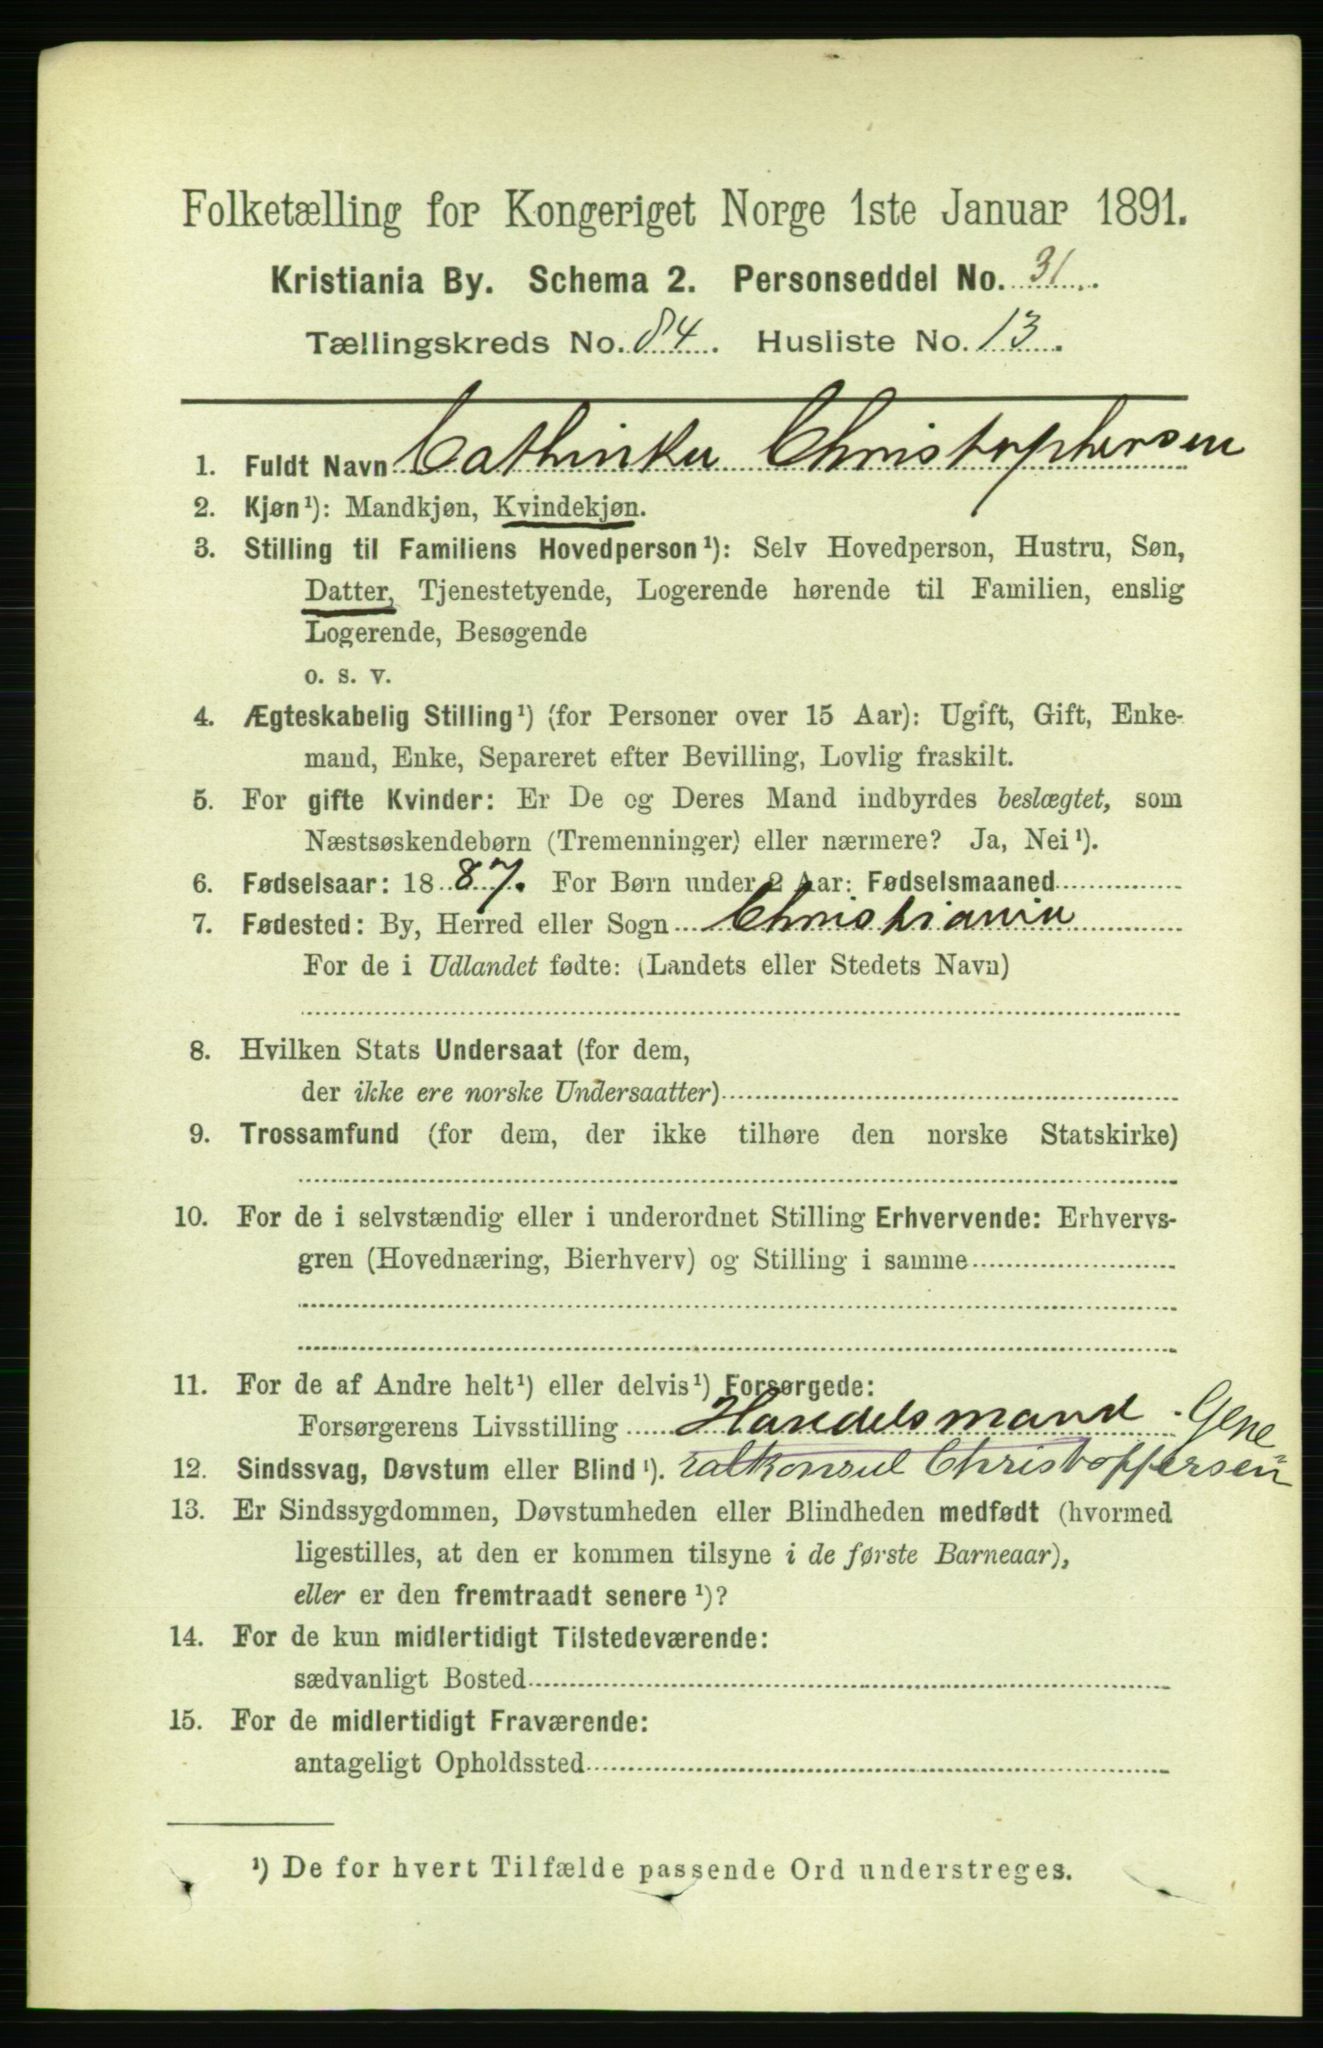 Folketælling for Kongeriget Norge 1ste Januar 1891.
Kristiania By. Schema 2. Personseddel No. 31
Tællingskreds No. 84. Husliste No. 13.
1. Fuldt Navn Cathinka Christophersen
2. Kjøn¹): Mandkjøn, Kvindekjøn.
3. Stilling til Familiens Hovedperson¹): Selv Hovedperson, Hustru, Søn,
Datter, Tjenestetyende, Logerende hørende til Familien, enslig
Logerende, Besøgende
o. s. v.
4. Ægteskabelig Stilling¹) (for Personer over 15 Aar): Ugift, Gift, Enke-
mand, Enke, Separeret efter Bevilling, Lovlig fraskilt.
5. For gifte Kvinder: Er De og Deres Mand indbyrdes beslægtet, som
Næstsøskendebørn (Tremenninger) eller nærmere? Ja, Nei¹).
6. Fødselsaar: 1887. For Børn under 2 Aar: Fødselsmaaned
7. Fødested: By, Herred eller Sogn Christiania
For de i Udlandet fødte: (Landets eller Stedets Navn)
8. Hvilken Stats Undersaat (for dem,
der ikke ere norske Undersaatter)
9. Trossamfund (for dem, der ikke tilhøre den norske Statskirke)
10. For de i selvstændig eller i underordnet Stilling Erhvervende: Erhvervs-
gren (Hovednæring, Bierhverv) og Stilling i samme
11. For de af Andre helt¹) eller delvis¹) Forsørgede:
Forsørgerens Livsstilling Handelsmand. Gene=
12. Sindssvag, Døvstum eller Blind¹). ralkonsul Christoffersen
13. Er Sindssygdommen, Døvstumheden eller Blindheden medfødt (hvormed
ligestilles, at den er kommen tilsyne i de første Barneaar),
eller er den fremtraadt senere¹)?
14. For de kun midlertidigt Tilstedeværende:
sædvanligt Bosted
15. For de midlertidigt Fraværende:
antageligt Opholdssted
¹) De for hvert Tilfælde passende Ord understreges.